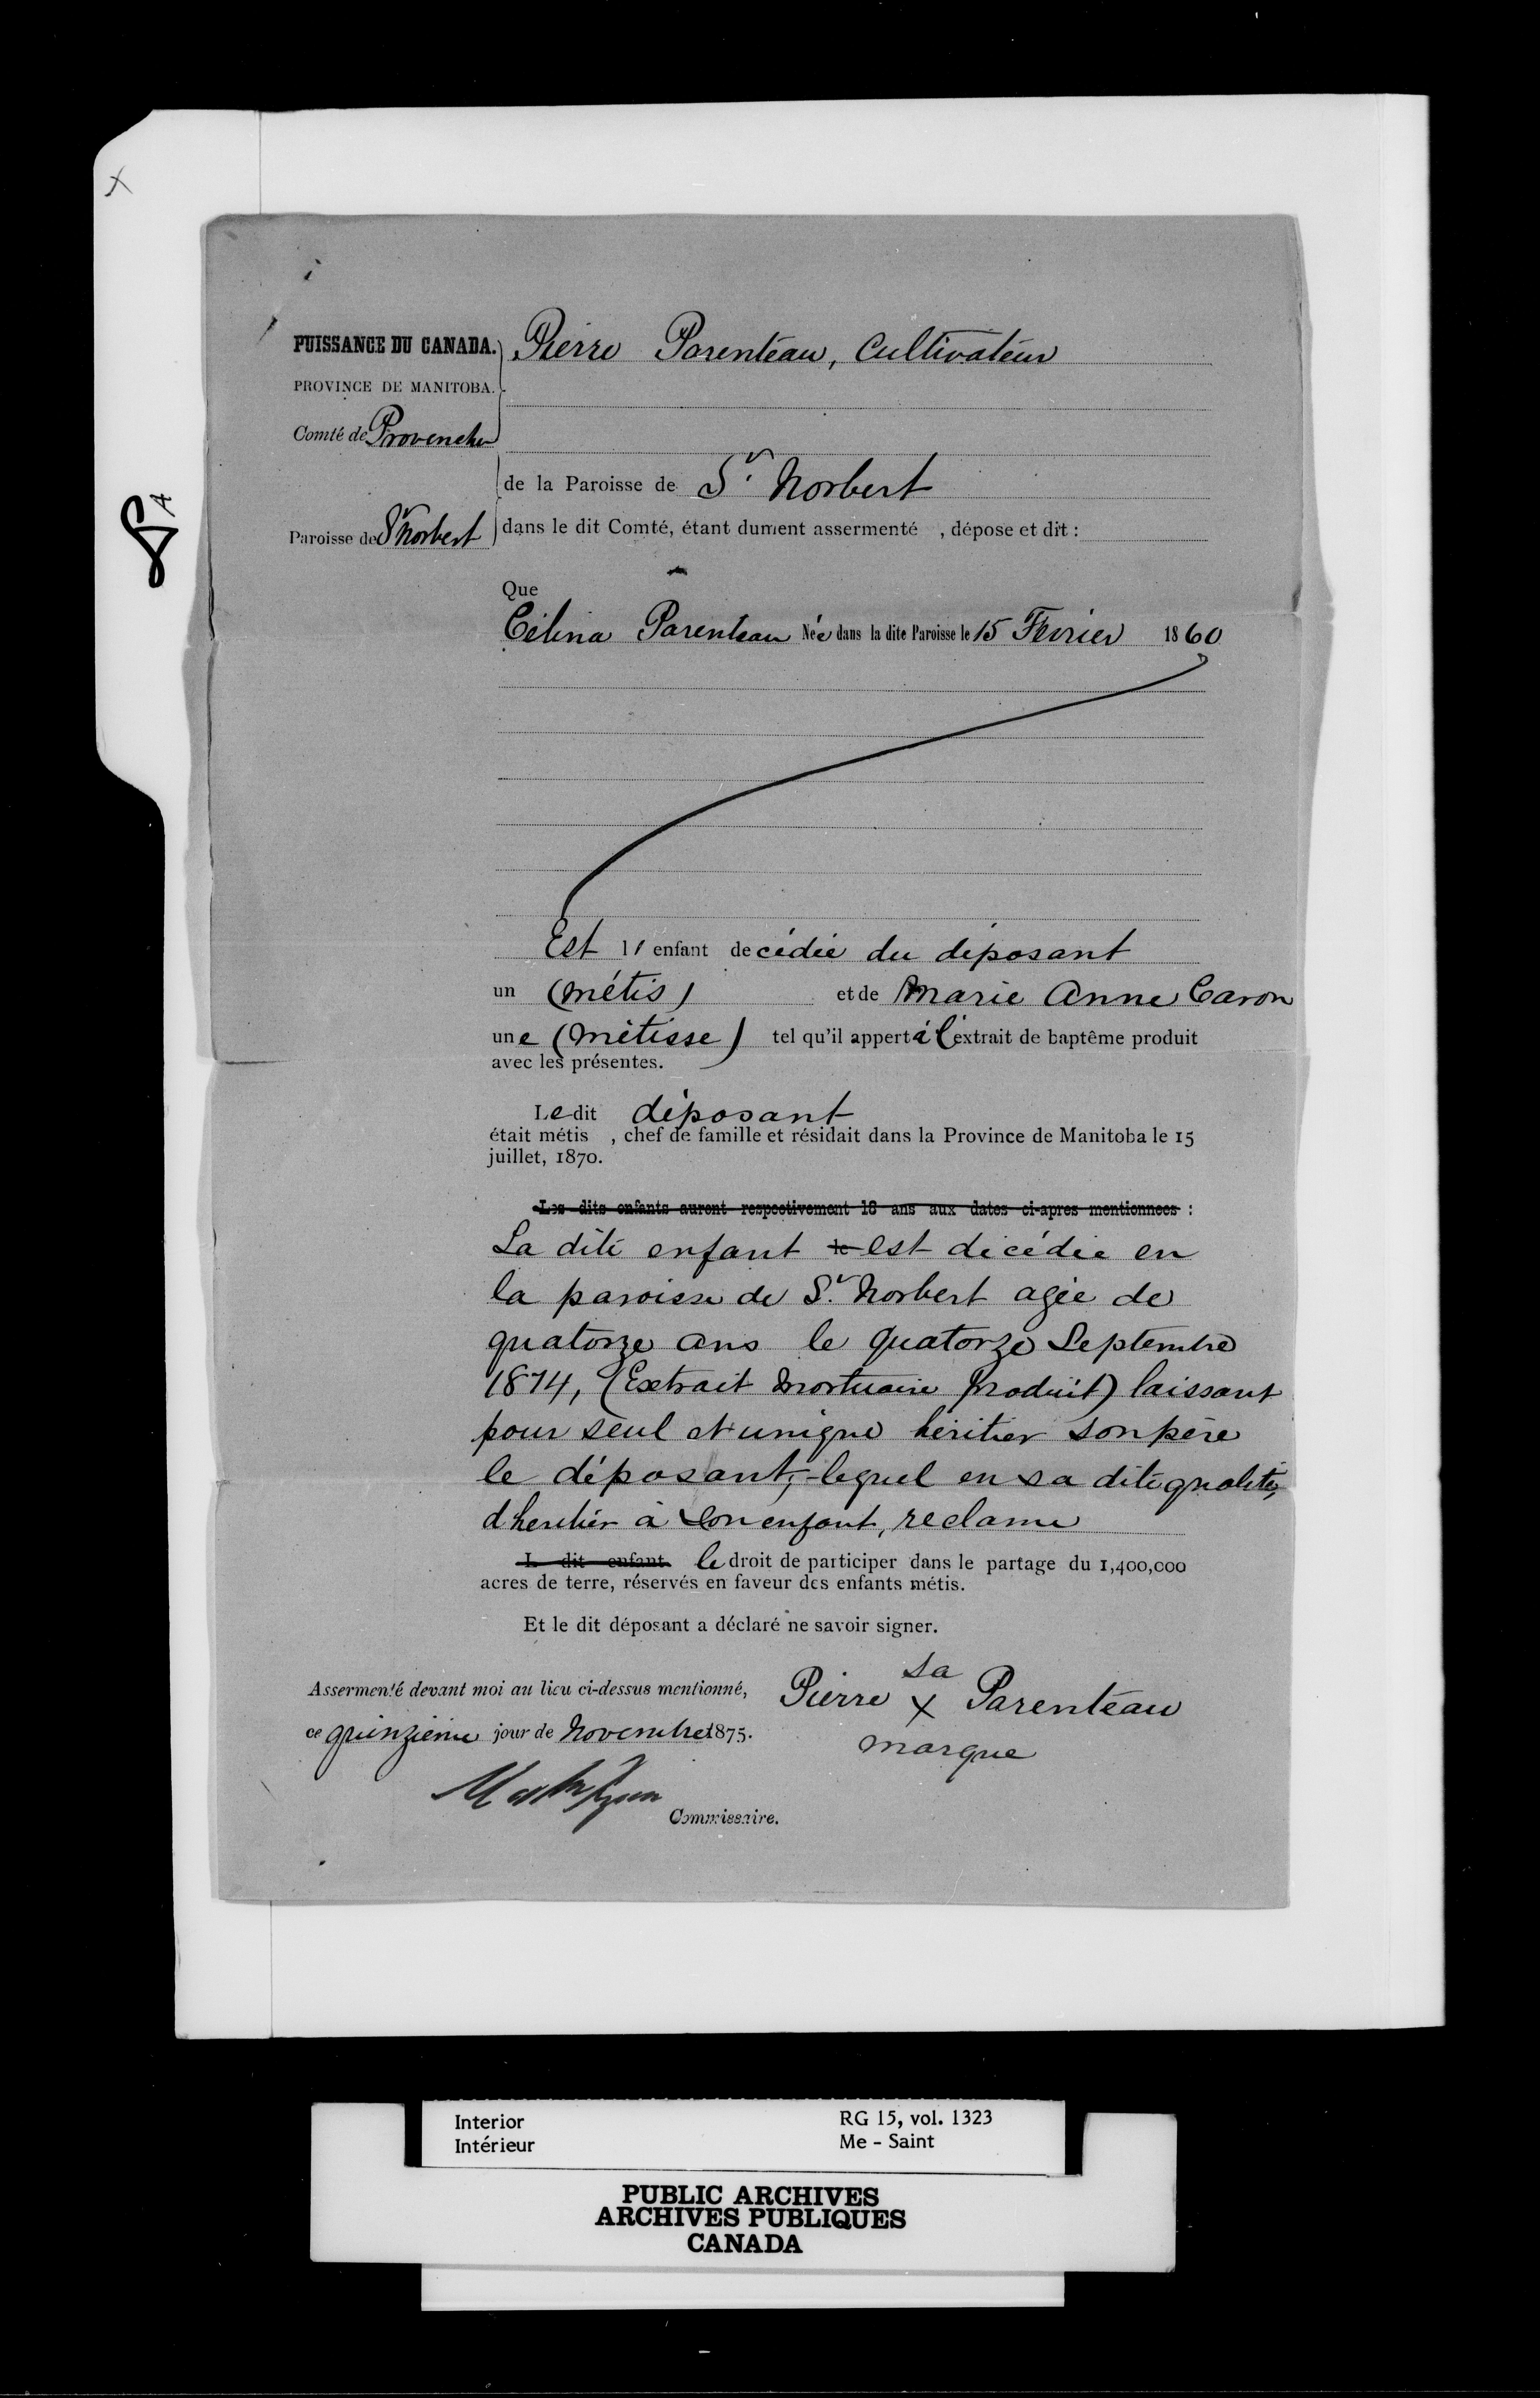 X
PUISSANCE DU CANADA. Pierre Parenteau, Cultivateur
PROVINCE DE MANITOBA.
Comté de Provencher
de la Paroisse de St. Norbert
Paroisse de St Norbert dans le dit Comté, étant dument assermenté , dépose et dit :
Que
Célina Parenteau Née dans la dite Paroisse le 15 Fevrier 1860
Est l' enfant decédée du déposant
un (métis) et de Marie Anne Caron
une (métisse) tel qu'il appert à l'extrait de baptême produit
avec les présentes.
Le dit déposant
était métis , chef de famille et résidait dans la Province de Manitoba le 15
juillet, 1870.
Les dits enfants auront respectivement 18 ans aux dates ci-apres mentionnees :
La dite enfant le est décédée en
la paroisse de St. Norbert agée de
quatorze ans le quatorze Septembre
1874, (Extrait Mortuaire Produit) laissant
pour seul et unique héritier son père
le déposant, lequel en sa dite qualité,
d'heritier à son enfant, reclame
L dit enfant le droit de participer dans le partage du 1,400,000
acres de terre, réservés en faveur des enfants métis.
Et le dit déposant a déclaré ne savoir signer.
Assermenté devant moi au lieu ci-dessus mentionné,
ce quinzieme jour de Novembre 1875.
sa
Pierre X Parenteau
marque
Commissaire.
Interior RG 15, vol. 1323
Intérieur Me - Saint
PUBLIC ARCHIVES
ARCHIVES PUBLIQUES
CANADA